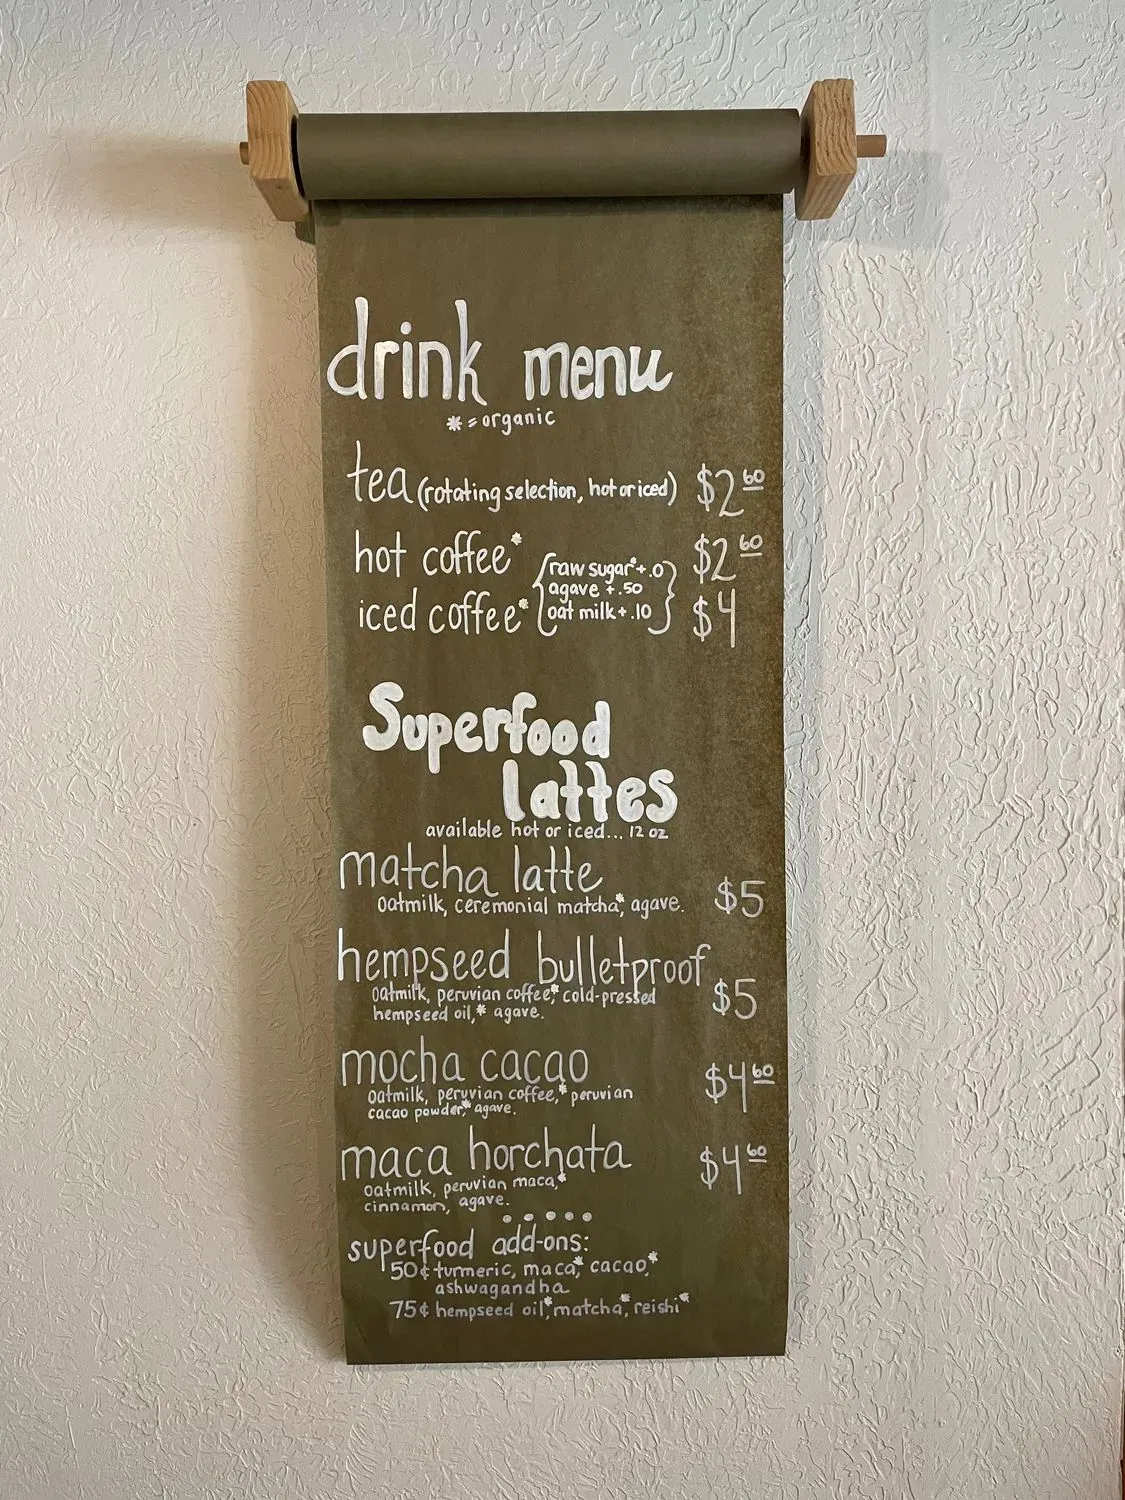 drink menu
* = organic
tea (rotating selection, hot or iced) $2 60
hot coffee* $2 60
iced coffee* $4
{raw sugar* + .0
agave + .50
oat milk + .10}
Superfood
lattes
available hot or iced... 12 oz
matcha latte
oatmilk, ceremonial matcha*, agave. $5
hempseed bulletproof
oatmilk, peruvian coffee,* cold-pressed $5
hempseed oil,* agave.
mocha cacao
oatmilk, peruvian coffee,* peruvian $4 60
cacao powder*, agave.
maca horchata $4 60
oatmilk, peruvian maca,*
cinnamon, agave.
superfood add-ons:
50¢ turmeric, maca*, cacao,*
ashwagandha
75¢ hempseed oil*, matcha*, reishi*